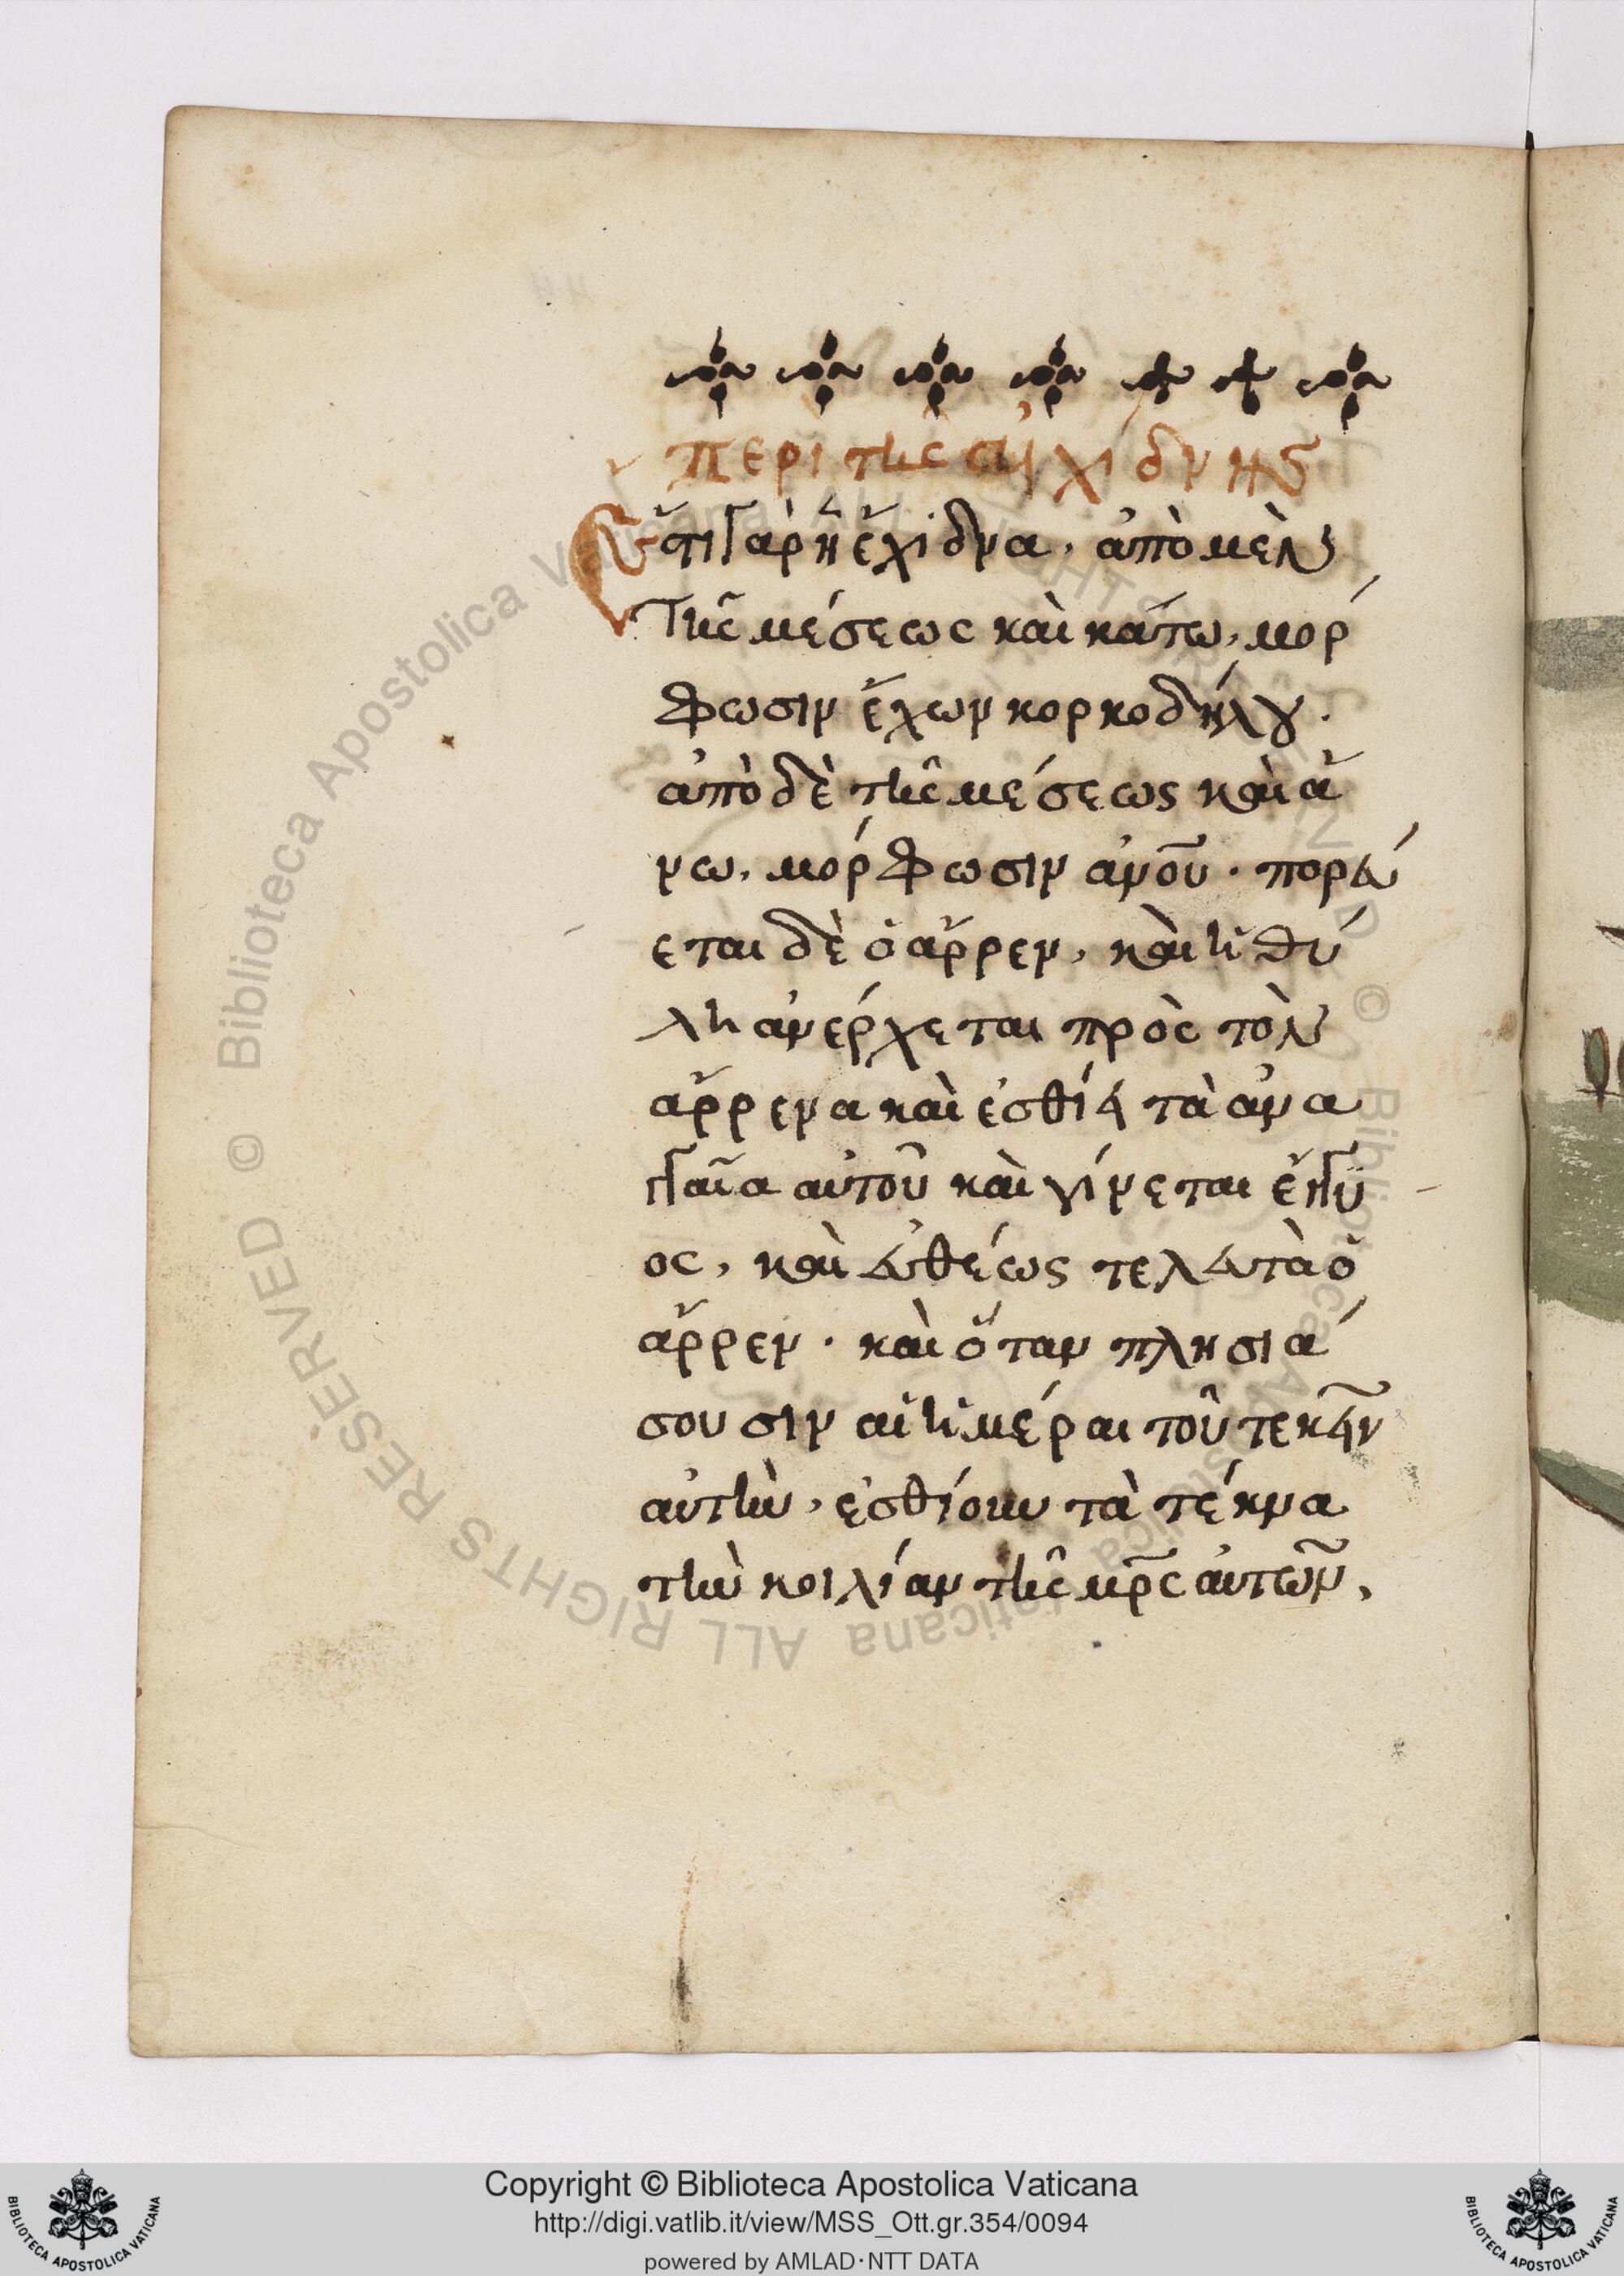 περὶ τῆς ἐχίδνης
Ἔστι γὰρ ἡ ἔχιδνα, ἀπὸ μὲν
τῆς μέσεως καὶ κάτω, μόρ
φωσιν ἔχων κορκοδήλου.
ἀπὸ δὲ τῆς μέσεως καὶ ἄ
νω, μόρφωσιν ἀνοῦ. πορεύ
εται δὲ ὁ ἄρρεν, καὶ ἡ θύ
λη ἀνέρχεται πρὸς τὸν
ἄρρενα καὶ ἐσθίει τὰ ἀνα
γαῖα αὐτοῦ καὶ γίνεται ἔγγυ
ος, καὶ εὐθέως τελευτὰ ὁ
ἄρρεν. καὶ ὅταν πλησιά
σουσιν αἱ ἡμέραι τοῦ τεκεῖν
αὐτὴν, ἐσθίουν τὰ τέκνα
τὴν κοιλίαν τῆς μρ̅ς αὐτῶν,
Biblioteca Apostolica Vaticana ALL RIGHTS RESERVED ©
Copyright © Biblioteca Apostolica Vaticana
http://digi.vatlib.it/view/MSS_Ott.gr.354/0094
powered by AMLAD·NTT DATA
BIBLIOTECA APOSTOLICA VATICANA
BIBLIOTECA APOSTOLICA VATICANA